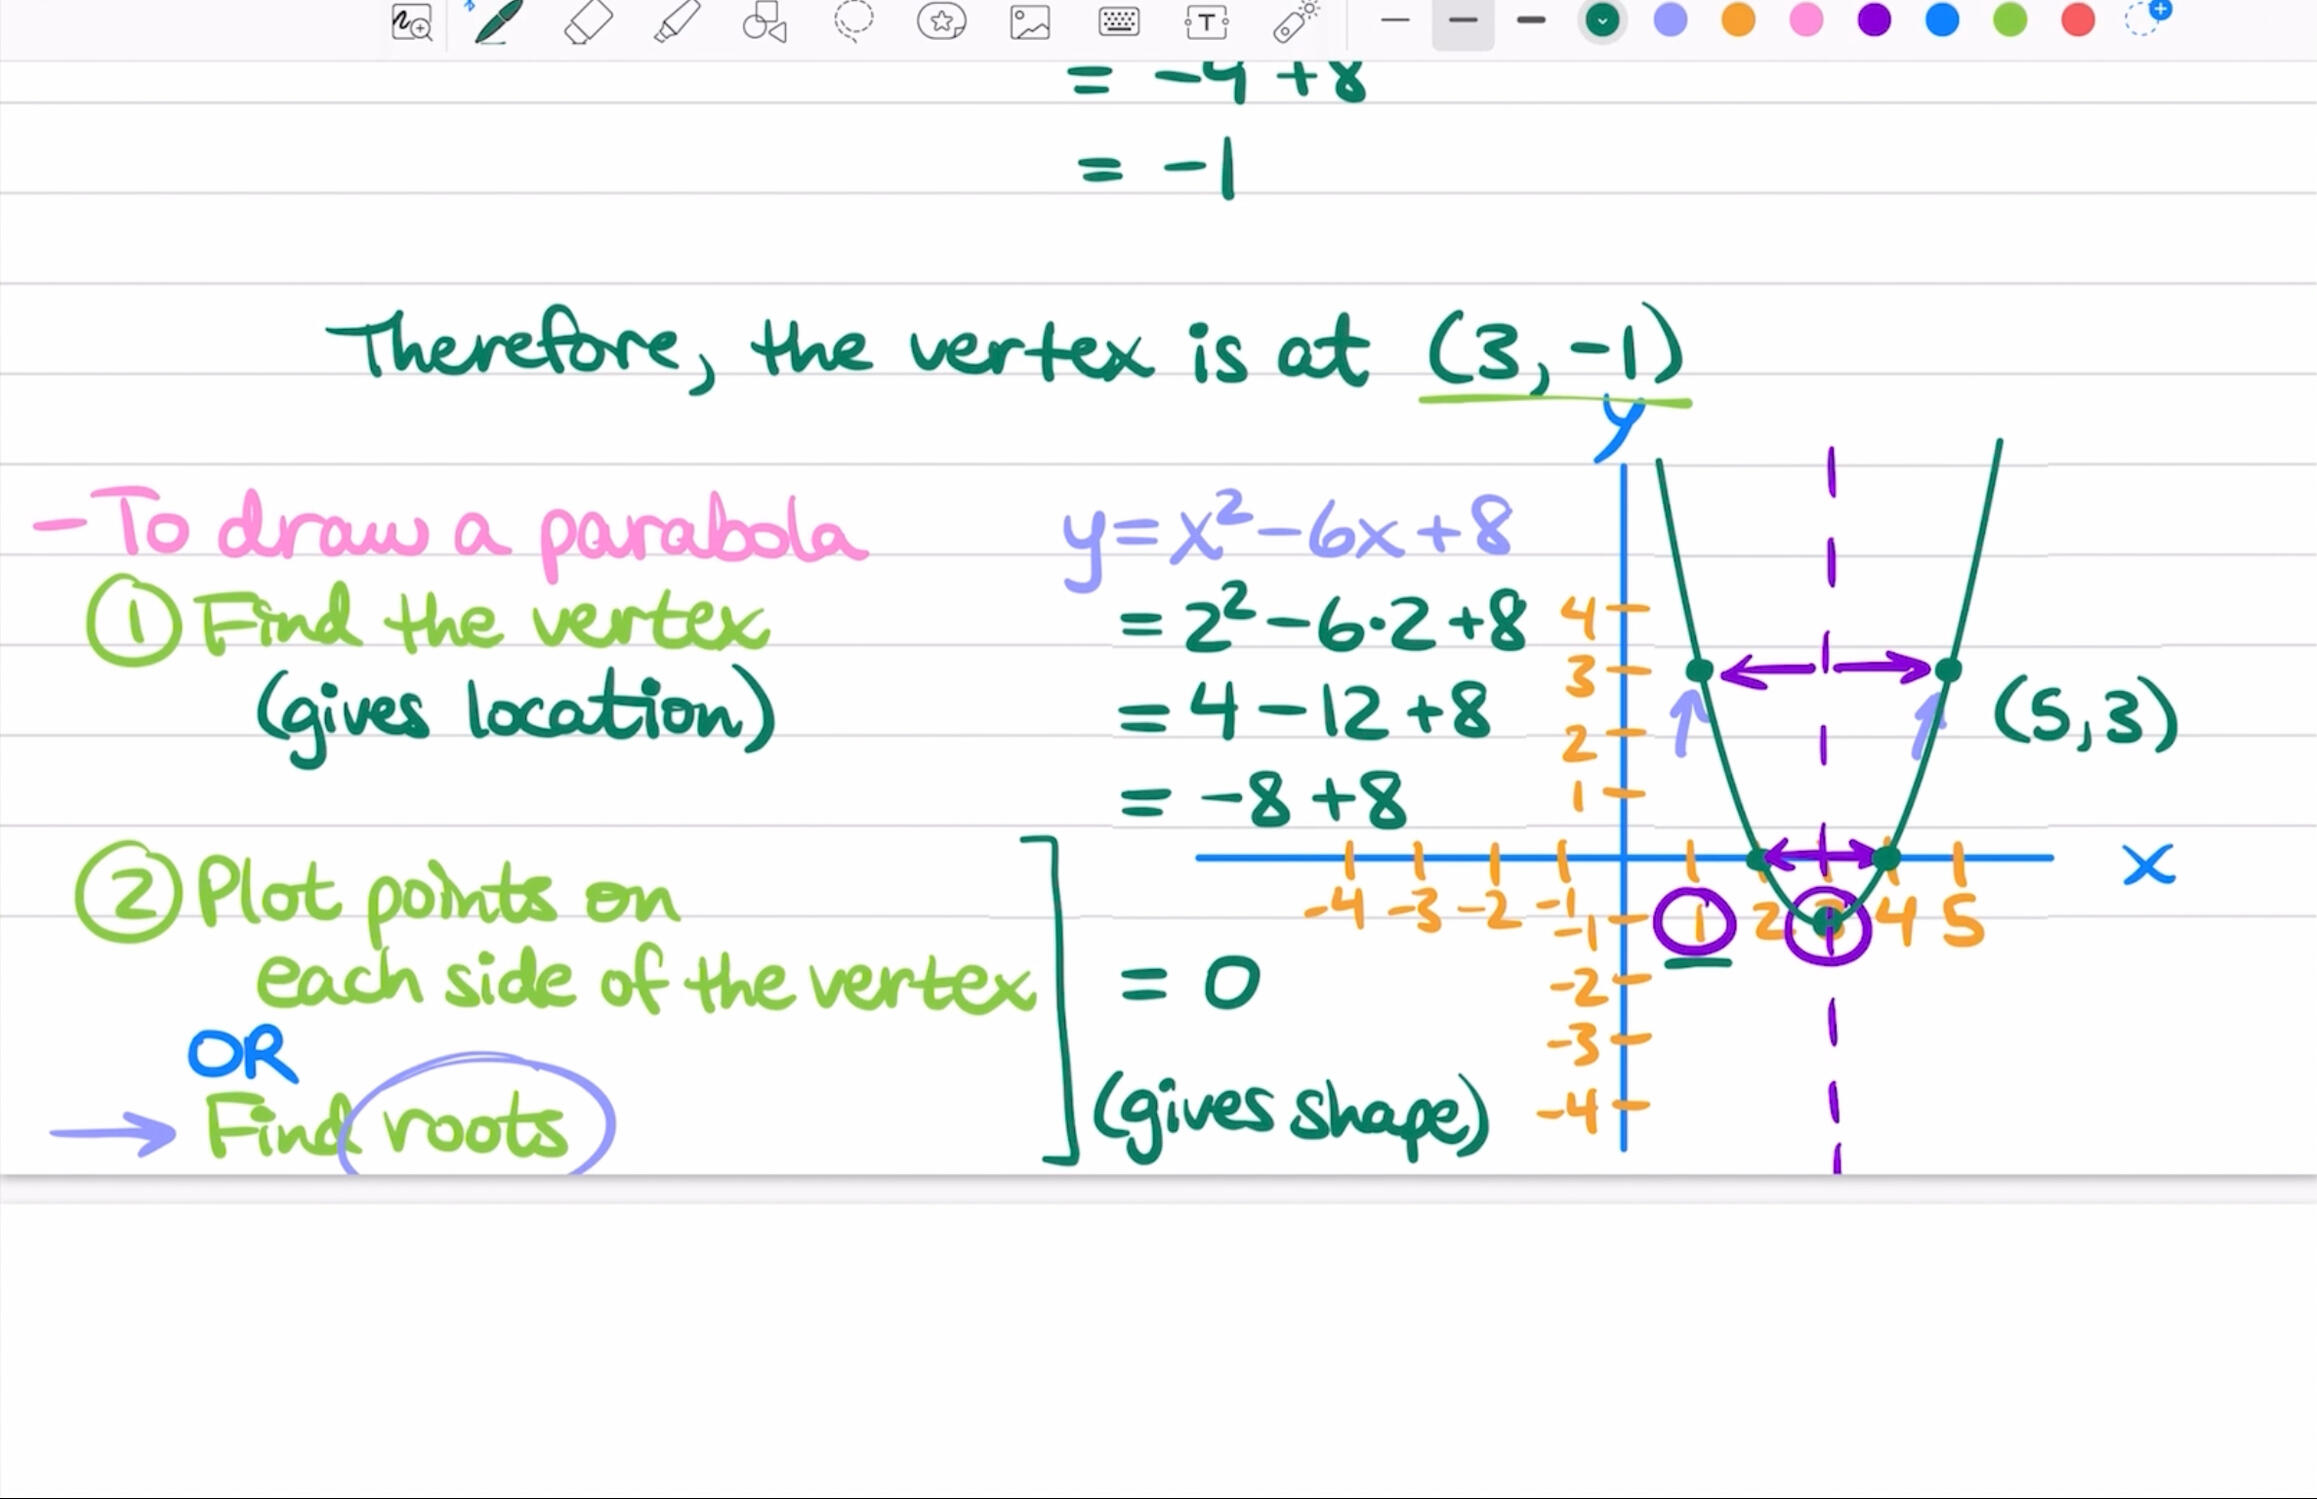 = -4 +8
= -1
Therefore, the vertex is at (3, -1)
y
-To draw a parabola
① Find the vertex
(gives location)
② Plot points on
each side of the vertex
OR
→ Find roots
y = x² - 6x + 8
= 2² - 6·2 + 8
= 4 - 12 + 8
= -8 + 8
= 0
(gives shape)
4
3
2
1
(5,3)
x
-4 -3 -2 -1 1 2 3 4 5
-1
-2
-3
-4